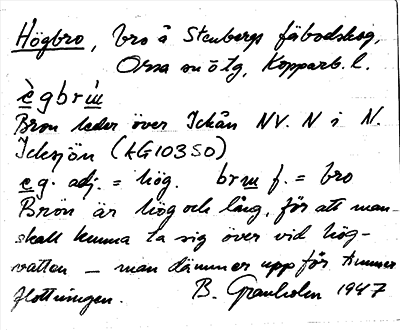 Högbro, bro å Stenbergs fäbodskog,
Orsa sn ö tg, Kopparb. l.
ègbrɯ̀
Bron leder över Ickån NV. N i N.
Icksjön (AG 103 SO)
eg. adj. = hög. brɯ f. = bro
Bron är hög och lång, för att man
skall kunna ta sig över vid hög-
vatten – man dämmer upp för timmer
flottningen. B. Granholm 1947